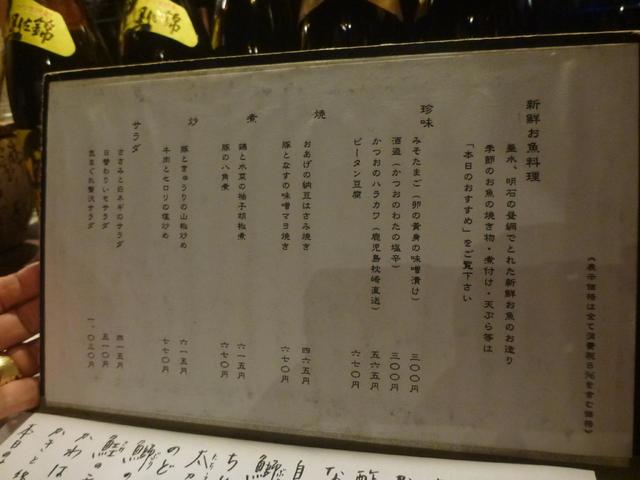 (表示価格は全て消費税8%を含む価格)
新鮮お魚料理
垂水、明石の昼網でとれた新鮮お魚のお造り
季節のお魚の焼き物・煮付け・天ぷら等は
「本日のおすすめ」をご覧下さい
珍味
みそたまご(卵の黄身の味噌漬け) 三〇〇円
酒盗(かつおのわたの塩辛) 三〇〇円
かつおのハラカワ(鹿児島枕崎直送) 五六五円
ピータン豆腐 六七〇円
焼
おあげの納豆はさみ焼き 四六五円
豚となすの味噌マヨ焼き 六七〇円
煮
鶏と水菜の柚子胡椒煮 六一五円
豚の八角煮 六七〇円
炒
豚ときゅうりの山椒炒め 六一五円
牛肉とセロリの塩炒め 七七〇円
サラダ
ささみと白ネギのサラダ 四一五円
日替わりいもサラダ 五一〇円
気まぐれ贅沢サラダ 一、〇三〇円